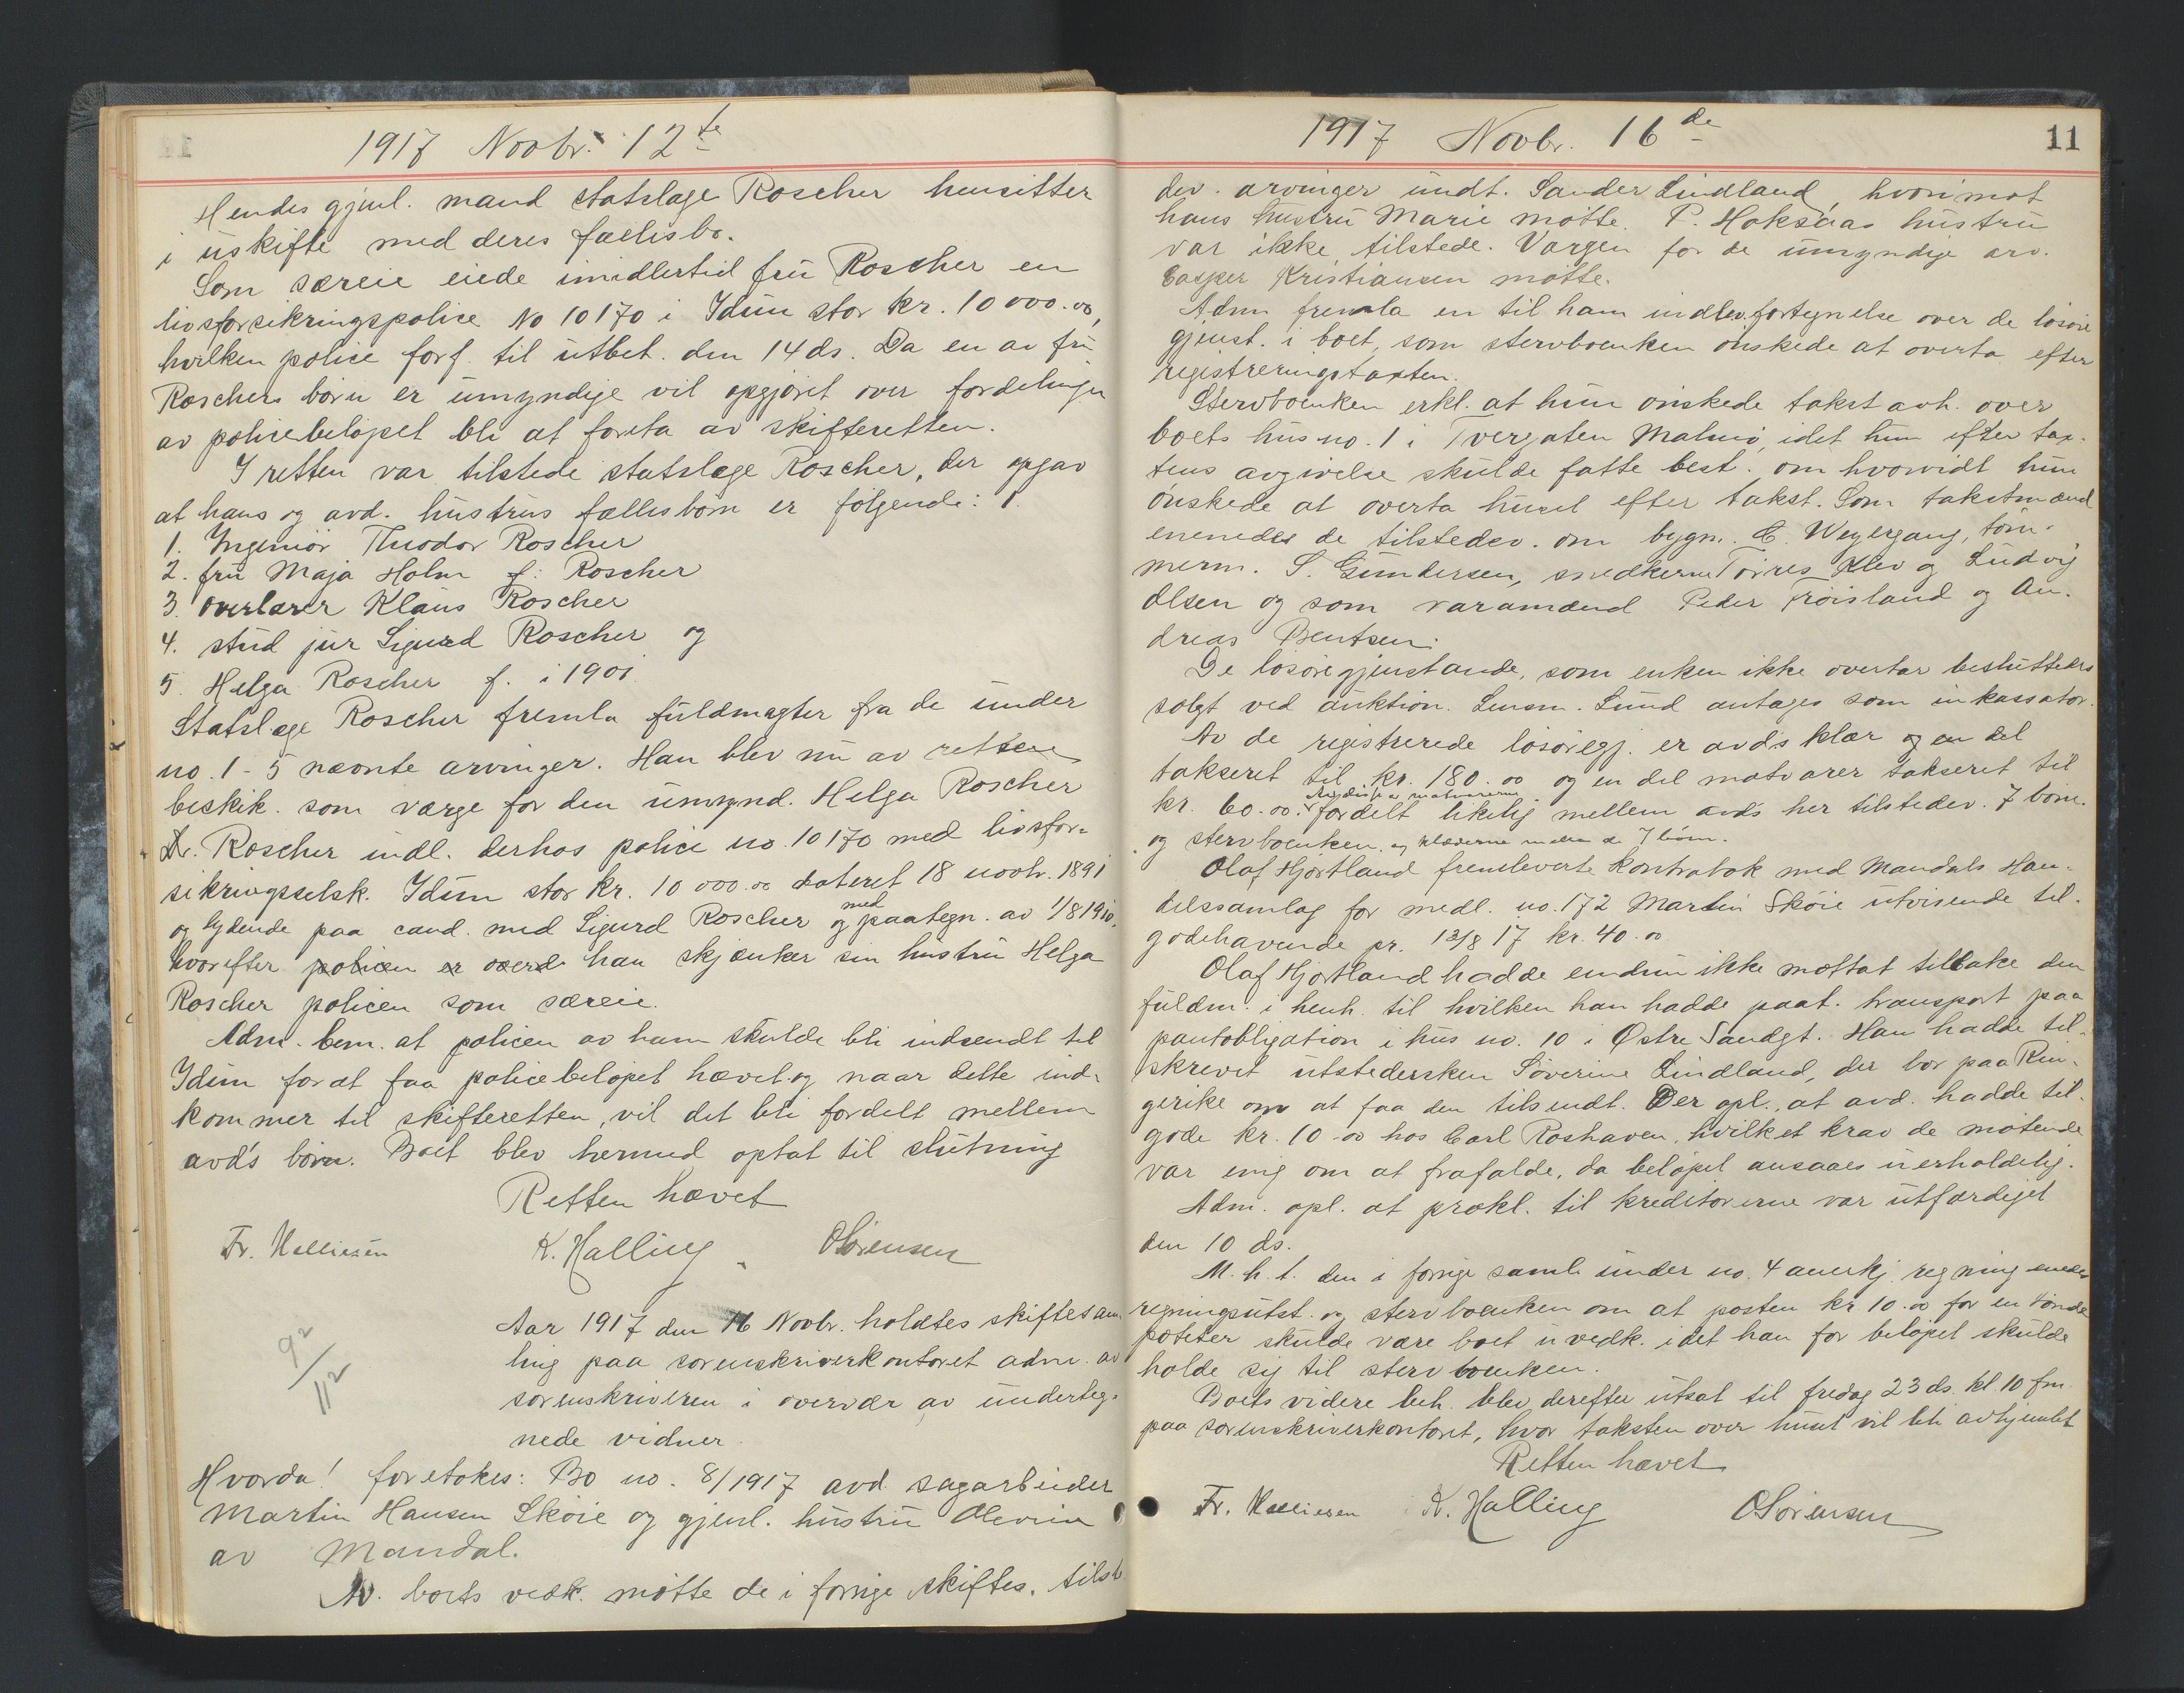 1917 Novbr. 12te
Hendes gjenl. mand statslæge Roscher hensitter
i uskifte med deres fællesbo.
Som særeie eiede imidlertid fru Roscher en
livsforsikringspolice No 10170 i Idun stor kr. 10000.00,
hvilken police forf. til utbet. den 14 ds. Da en av fru
Roschers børn er umyndige vil opgjøret over fordelingen
av policebeløpet bli at foreta av skifteretten.
I retten var tilstede statslæge Roscher, der opgav
at hans og avd. hustrus fællesbørn er følgende:
1. Ingeniør Theodor Roscher
2. fru Maja Holm f. Roscher
3. overlærer Klaus Roscher
4. stud jur Sigurd Roscher og
5. Helga Roscher f. i 1901
Statslæge Roscher fremla fuldmagter fra de under
no. 1 - 5 nævnte arvinger. Han blev nu av retten
beskik. som værge for den umynd. Helga Roscher
Dr. Roscher indl. derhos police no. 10170 med livsfor-
sikringsselsk. Idun stor kr. 10000.00 dateret 18 novbr. 1891
og lydende paa cand. med Sigurd Roscher og med paategn. av 1/8 1910,
hvorefter policen er han skjænker sin hustru Helga
Roscher policen som særeie.
Adm. bem. at policen av ham skulde bli indsendt til
Idun for at faa policebeløpet hævet og naar dette ind-
kommer til skifteretten, vil det bli fordelt mellem
avd's børn. Boet blev hermed optat til slutning
Retten hævet
Fr. K. Halling OSørensen
Aar 1917 den 16 Novbr. holdtes skiftesam
ling paa sorenskriverkontoret adm. av
sorenskriveren i overvær av underteg-
nede vidner.
Hvorda! foretokes: Bo no. 8/1917 avd sagarbeider
Martin Hansen Skøie og gjenl. hustru Olevine
av Mandal.
Av boets vedk. møtte de i forrige skiftes. tilst
1917 Novbr. 16de
11
dev. arvinger undt. Sander Lindland, hvorimot
hans hustru Marie møtte. P. Høksaas hustru
var ikke tilstede. Værgen for de umyndige arv.
Casper Kristiansen møtte.
Adm fremla en til ham indlev. fortegnelse over de løsøre
gjenst. i boet, som stervboenken ønskede at overta efter
registreringstaxten.
Stervboenken erkl. at hun ønskede takst avh. over
boets hus no. 1 i Tvergaten Malmø, idet hun efter tax-
tens avgivelse skulde fatte best. om hvorvidt hun
ønskede at overta huset efter takst. Som takstmænd
enenedes de tilstedev. om bygm. C. Wegergang, tøm-
merm. S. Gundersen, snedkerne Tørres Klev og Ludvig
Olsen og som varamænd Peder Frøisland og An-
dreas Bentsen.
De løsøregjenstande, som enken ikke overtar besluttedes
solgt ved auktion. Lensm. Lund antages som inkassator.
Av de registrerede løsøregj. er avd's klær og en del
takseret til kr. 180.00 og en del matvarer takseret til
kr. 60.00. fordelt likelig mellem avd's her tilstedev. 7 børn.
og stervboenken. og klæderne mellem de 7 børn.
Olaf Hjortland fremleverte kontrabok med Mandals Han-
delssamlag for medl. no. 172 Martin Skøie utvisende til-
godehavende pr. 13/8 17 kr. 40.00
Olaf Hjortland hadde endnu ikke mottat tilbake den
fuldm. i henh. til hvilken han hadde paat. transport paa
pantobligation i hus no. 10 i Østre Sandgt. Han hadde til-
skrevet utstedersken Søverine Lindland, der bor paa Rin-
gerike om at faa den tilsendt. Der opl., at avd. hadde til-
gode kr. 10.00 hos Carl Roshaven, hvilket krav de møtende
var enig om at frafalde, da beløpet ansaaes uerholdelig.
Adm. opl. at prokl. til kreditorerne var utfærdiget
den 10 ds.
M. h. t. den i forrige saml. under no. 4 anerkj. regning enedes
regningsutst. og stervboenken om at posten kr 10.00 for en tønde
poteter skulde være boet uvedk. idet han for beløpet skulde
holde sig til stervboenken.
Boets videre beh. blev derefter utsat til fredag 23 ds. kl. 10 fm
paa sorenskriverkontoret, hvor taksten over huset vil bli avhjemlet
Retten hævet
Fr. K. Halling OSørensen